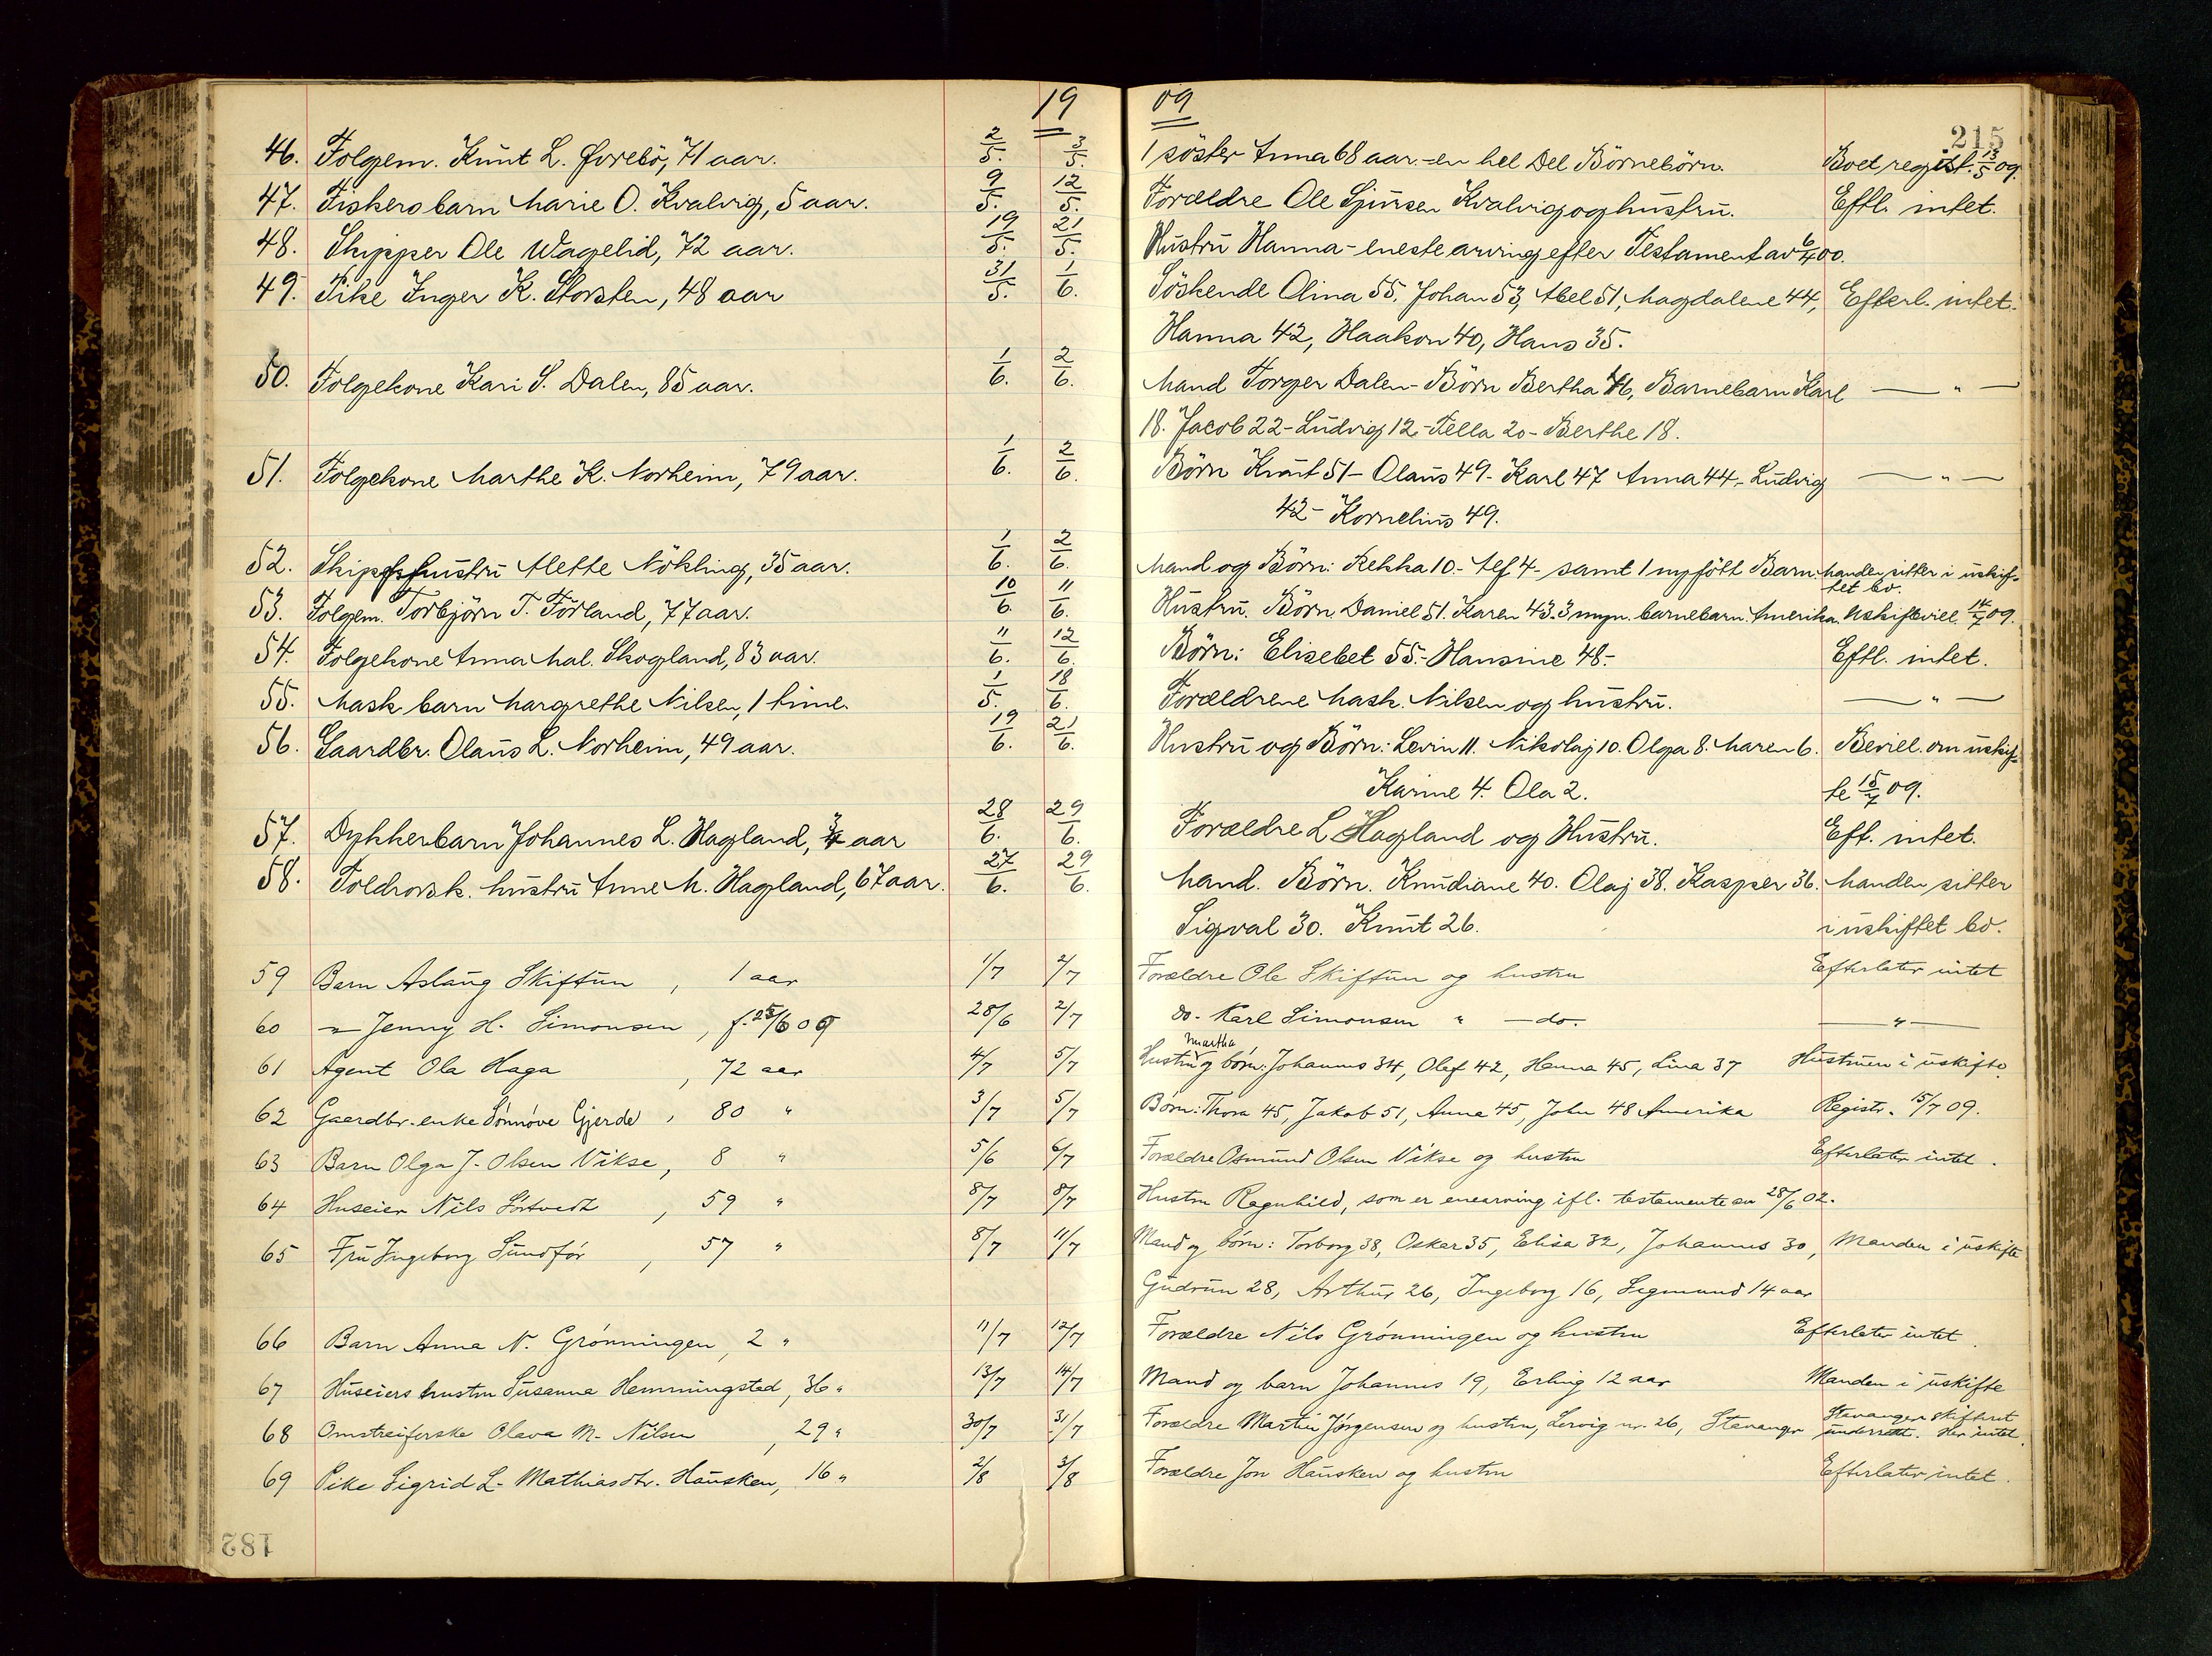 19 09
215
46. Folgem. Knut L. Øvrebö, 71 aar. 2/5. 3/5. 1 söster Anna 68 aar.-en hel Del Börnebörn. Boet regist. 13/5 09.
47. Fiskersbarn Marie O. Kvalvig, 5 aar. 9/5. 12/5. Forældre Ole Sjursen Kvalvig og hustru. Eftl. intet.
48. Skipper Ole Wagelid, 72 aar. 19/5. 21/5. Hustru Hanna - eneste arving efter Testament av 6/4 00.
49. Pike Inger K. Storsten, 48 aar 31/5. 1/6. Söskende Olina 55, Johan 53, Abel 51, Magdalene 44, Efterl. intet.
Hanna 42, Haakon 40, Hans 35.
50. Folgekone Kari S. Dalen, 85 aar. 1/6. 2/6. Mand Torger Dalen - Börn Bertha 46, Barnebarn Karl — " —
18. Jacob 22 - Ludvig 12 - Tella 20 - Berthe 18.
51. Folgekone Marthe K. Norheim, 79 aar. 1/6. 2/6. Börn Knut 51 - Olaus 49 - Karl 47 Anna 44 - Ludvig — " —
42 - Kornelius 49.
52. Skipshustru Alette Nökling, 35 aar. 1/6. 2/6. Mand og Börn: Rekka 10 - Alf 4 - samt 1 nyfött Barn. Manden sitter i uskif-
tet bo.
53. Folgem. Torbjörn T. Förland, 77 aar. 10/6. 11/6. Hustru. Börn Daniel 51. Karen 43. 3 myn. barnebarn Amerika. Uskiftevill. 14/7 09.
54. Folgekone Anna Mal. Skogland, 83 aar. 11/6. 12/6. Börn: Elisebet 55.- Hansine 48.- Eftl. intet.
55. Mask. barn Margrethe Nilsen, 1 time. 1/5. 18/6. Forældrene Mask. Nilsen og hustru. — " —
56. Gaardbr. Olaus L. Norheim, 49 aar. 19/6. 21/6. Hustru og Börn: Levin 11. Nikolaj 10. Olga 8. Maren 6. Bevill. om uskif-
Karine 4. Ola 2. te 15/7 09.
57. Dykkerbarn Johannes L. Hagland, 3/4 aar 28/6. 29/6. Forældre L. Hagland og Hustru. Eft. intet.
58. Toldrorsk. hustru Anne M. Hagland, 67 aar. 27/6. 29/6. Mand. Börn. Knudiane 40. Olaj 38. Kasper 36. Manden sitter
Sigval 30. Knut 26. i uskiftet bo.
59 Barn Aslaug Skiftun, 1 aar 1/7 2/7 Forældre Ole Skiftun og hustru Efterlater intet
60 " Jenny H. Simonsen, f. 25/6 09 28/6 2/7 do. Karl Simonsen " - do. — " —
Martha
61 Agent Ola Haga, 72 aar 4/7 5/7 Hustru og börn: Johannes 34, Olef 42, Hanna 45, Lina 37 Hustruen i uskifte.
62 Gaardbr. enke Sønnøve Gjerde, 80 " 3/7 5/7 Börn: Thora 45, Jakob 51, Anna 45, John 48 Amerika Registr. 15/7 09.
63 Barn Olga J. Olsen Vikse, 8 " 5/6 6/7 Forældre Osmund Olsen Vikse og hustru Efterlater intet.
64 Huseier Nils Sörtvedt, 59 " 8/7 8/7 Hustru Ragnhild, som er enearving ifl. testamente av 28/6 02.
65 Fru Ingeborg Sundför, 57 " 8/7 11/7 Mand og börn: Torborg 38, Oskar 35, Elisa 32, Johannes 30, Manden i uskifte
Gudrun 28, Arthur 26, Ingeborg 16, Sigmund 14 aar
66 Barn Anna N. Grönningen, 2 " 11/7 12/7 Forældre Nils Grönningen og hustru Efterlater intet.
67 Huseiers hustru Susanna Hemmingstad, 36 " 13/7 14/7 Mand og barn Johannes 19, Erling 12 aar Manden i uskifte
68 Omstreiferske Olava M. Nilsen, 29 " 30/7 31/7 Forældre Martin Jörgensen og hustru, Lervig nr. 26, Stavanger Stavanger skifteret
underrettet. Her intet.
69 Pike Sigrid L. Mathiasdtr. Hausken, 16 " 2/8 3/8 Forældre Jon Hausken og hustru Efterlater intet.
182